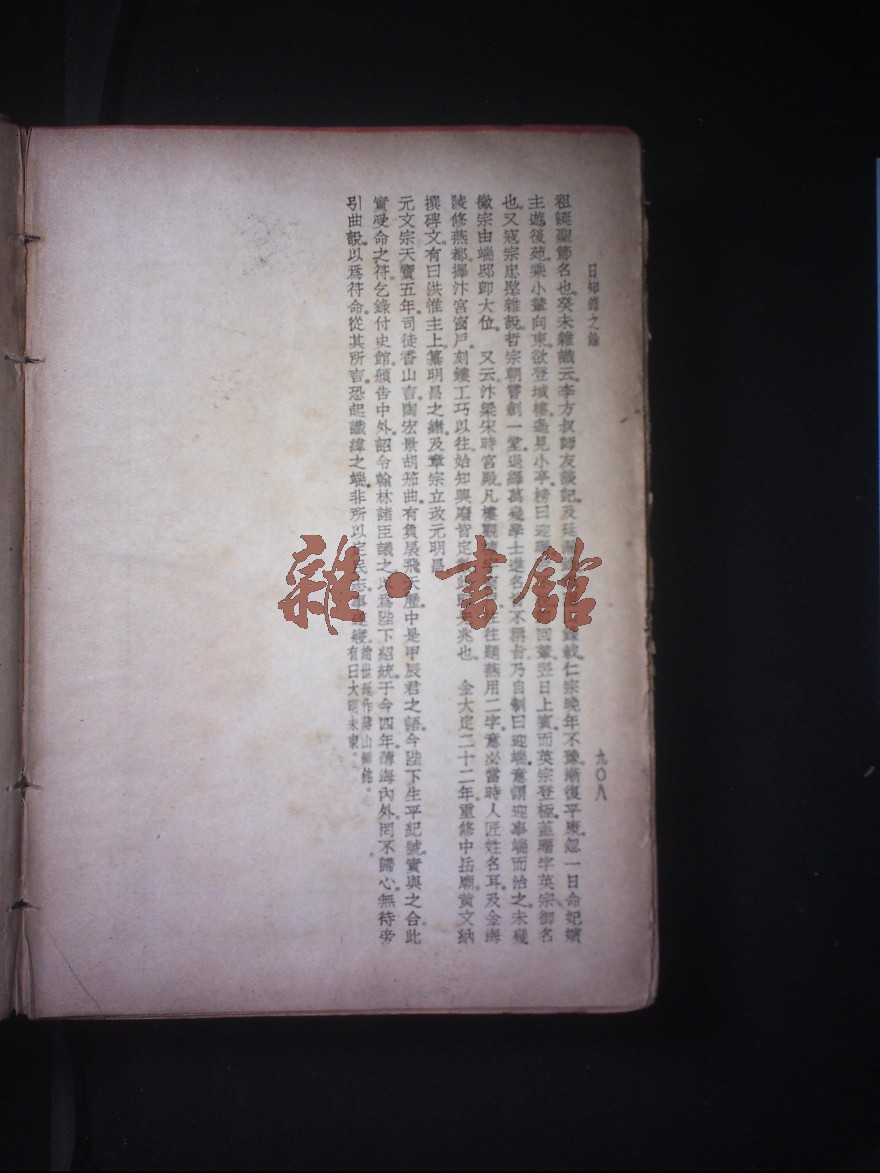 日知錄之餘
九〇八
祖誕聖節名也癸未雜識云李方叔師友談記及延漏錄載仁宗晚年不豫漸復平康忽一日命妃嬪
主遊後苑乘小輦向東欲登城樓遙見小亭榜曰迎回輦翌日上賓而英宗登極蓋曙字英宗御名
也又寇宗忠愍雜說哲宗朝嘗創一堂退繹萬幾學士進名皆不稱旨乃自制曰迎端意謂迎事端而治之未幾
徽宗由端邸卽大位 又云汴梁宋時宮殿凡樓觀往往題燕用二字意必當時人匠姓名耳及金海
陵修燕都擇汴宮窗戶刻鏤工巧以往始知興廢皆定兆也 金大定二十二年重修中岳廟黄文納
撰碑文有曰洪惟主上纂明昌之緒及章宗立改元明昌
元文宗天曆五年司徒香山言陶宏景胡笳曲有負扆飛天曆中是甲辰君之語今陛下生平紀號實與之合此
實受命之符乞錄付史館頒告中外詔令翰林諸臣議之以爲陛下紹統于今四年薄海內外罔不歸心無待旁
引曲說以爲符命從其所言恐起讖緯之端非所以定民志事遂寢有曰大明未東
雜·書館